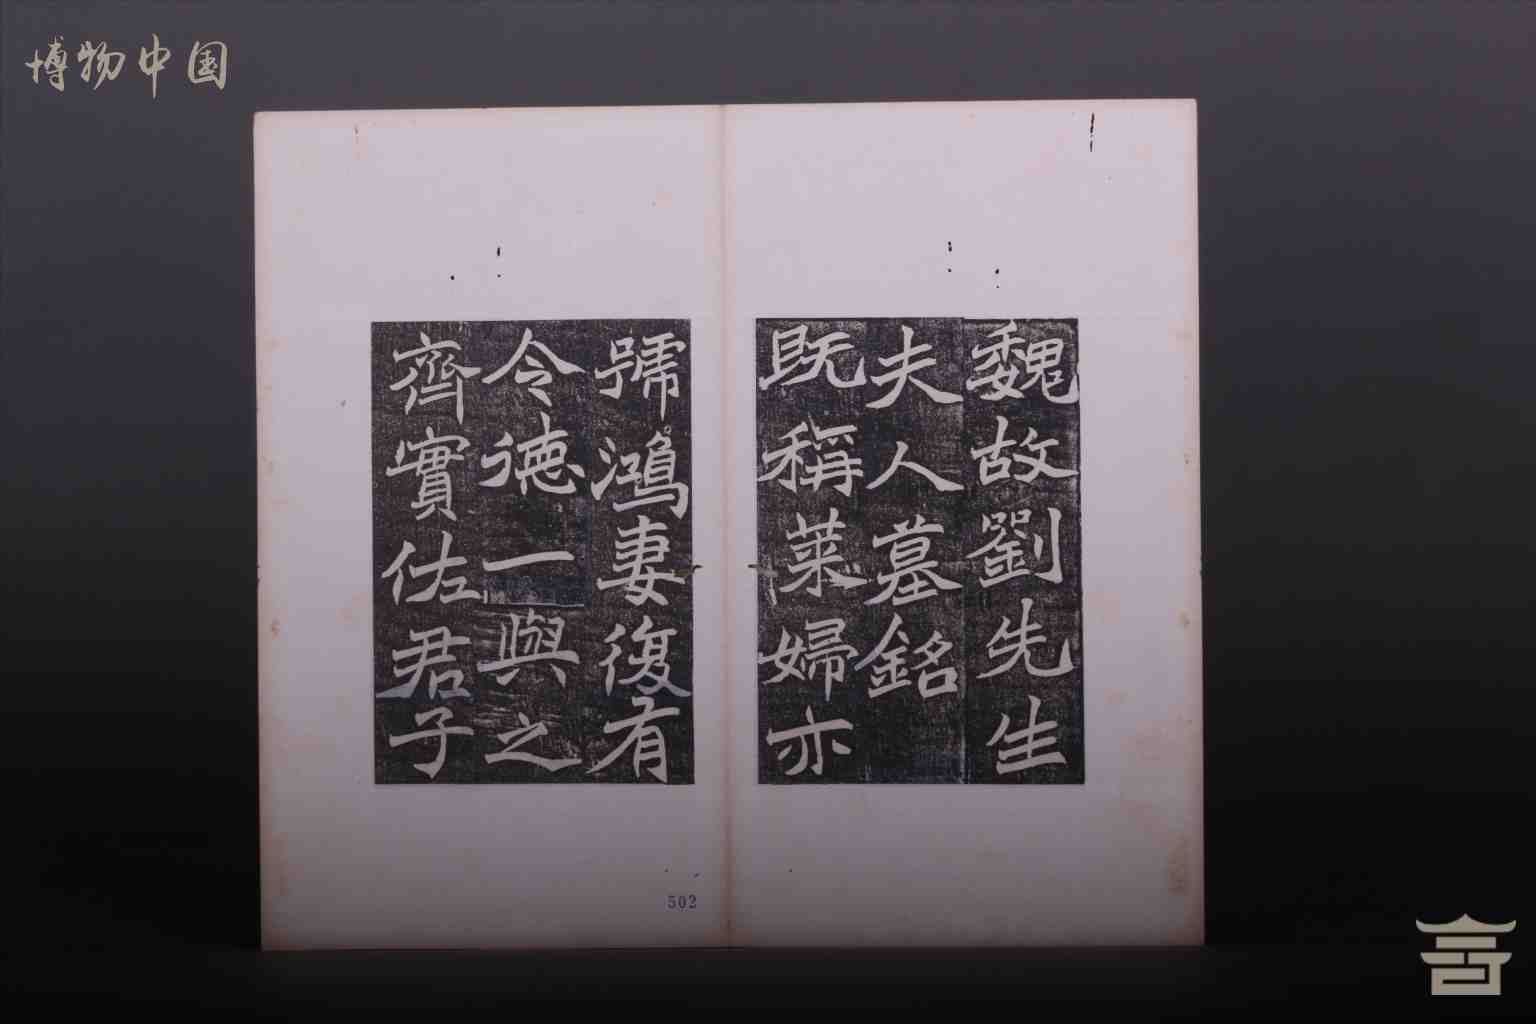 博物中国
魏故劉先生
夫人墓銘
既稱萊婦亦
號鴻妻復有
令德一與之
齊實佐君子
502